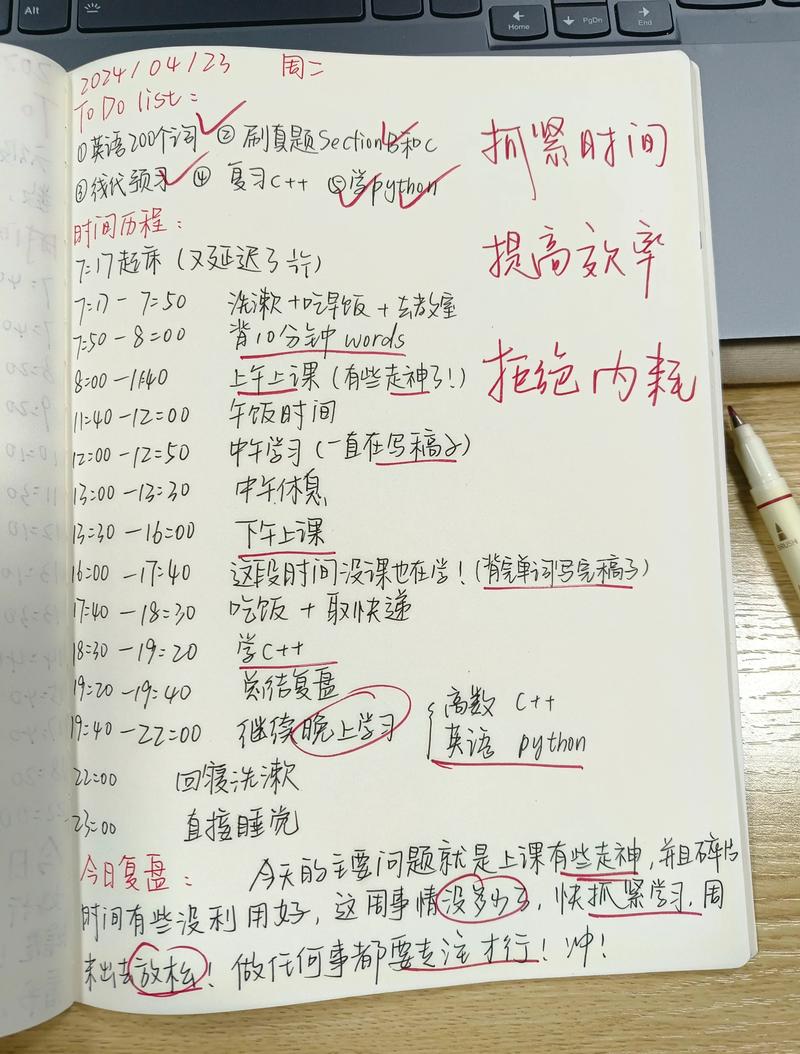 Alt
Home
PgDn
End
2024/04/23 周二
To Do list:
①英语200个词 ②刷真题SectionB和C
③线代预习 ④ 复习C++ ⑤学python
抓紧时间
提高效率
拒绝内耗
时间历程:
7:17起床(又延迟了许)
7:17-7:50 洗漱+吃早饭+去教室
7:50-8:00 背10分钟words
8:00-11:40 上午上课(有些走神了!)
11:40-12:00 午饭时间
12:00-12:50 中午学习(一直在写稿子)
13:00-13:30 中午休息
13:30-16:00 下午上课
16:00-17:40 这段时间没课也在学!(背完单词写完稿子)
17:40-18:30 吃饭+取快递
18:30-19:20 学C++
19:20-19:40 总结复盘
19:40-22:00 继续晚上学习 { 高数 C++
英语 python
22:00 回寝洗漱
23:00 直接睡觉
今日复盘: 今天的主要问题就是上课有些走神,并且碎片
时间有些没利用好,这周事情没多少了,快抓紧学习,周
末出去放松!做任何事都要专注才行!冲!
BRUSH